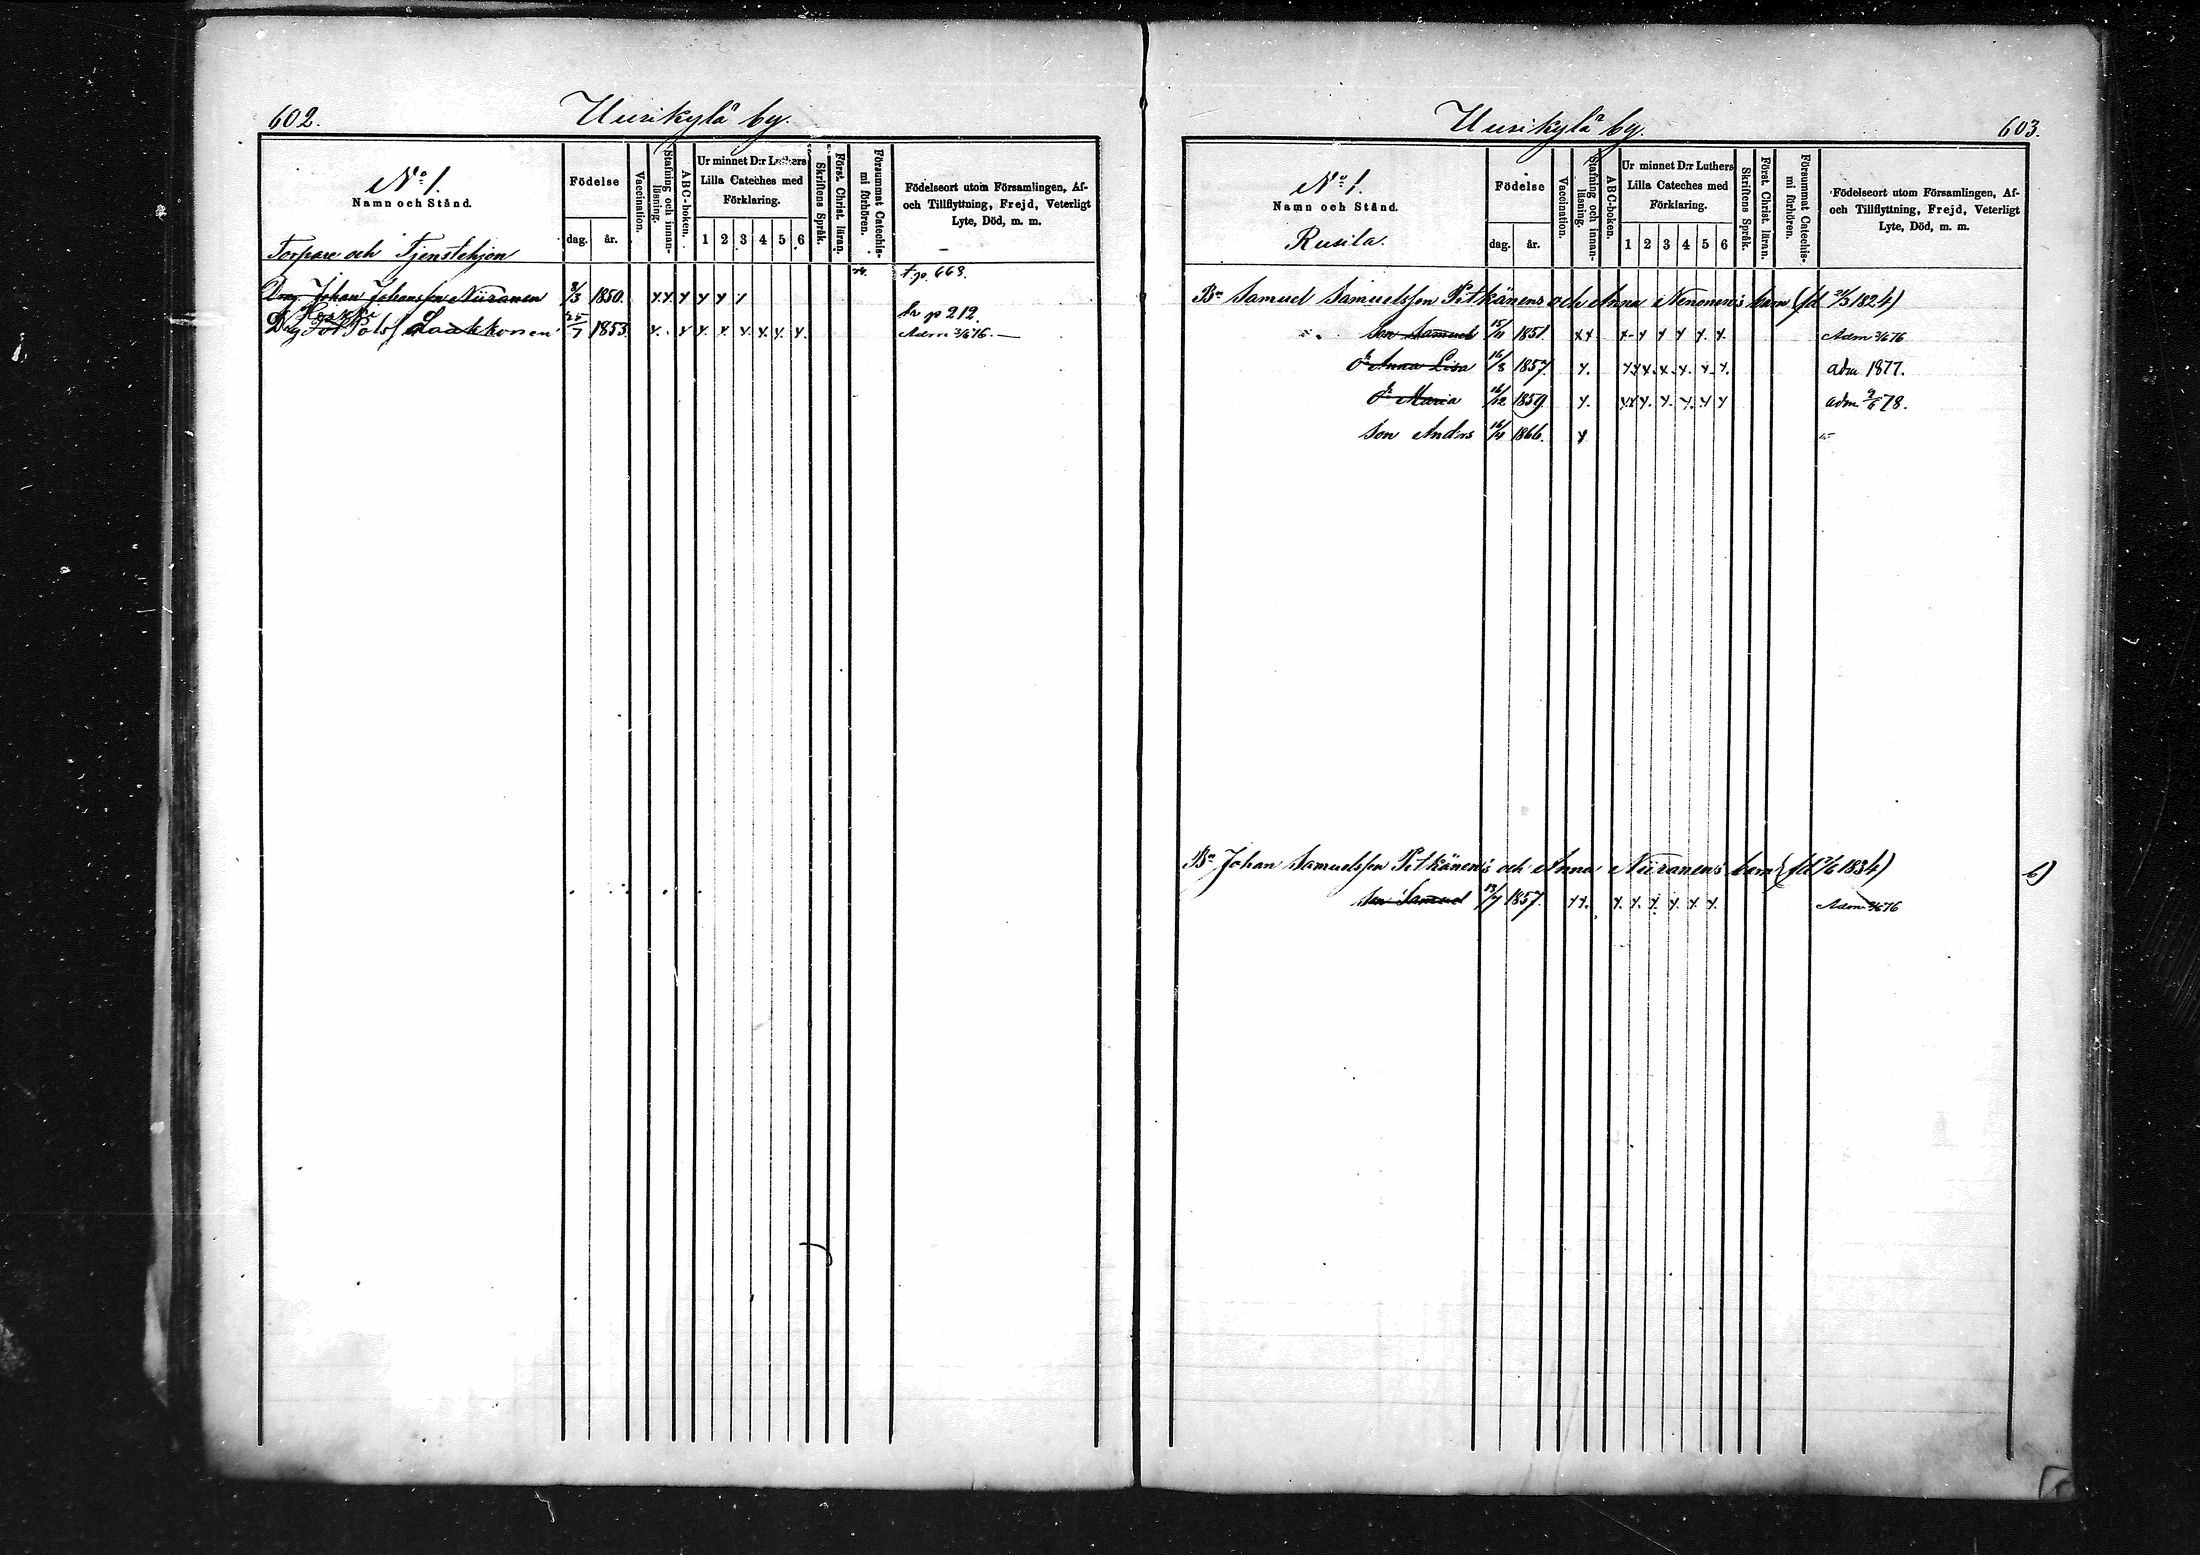 602.
Uusikylä by.
No 1.
Namn och Stånd.
Torpare och Tjenstehjon
Födelse
dag. år.
Vaccination.
Stafning och innan-läsning.
ABC-boken.
Ur minnet D:r Luthers
Lilla Cateches med
Förklaring.
1 2 3 4 5 6
Skriftens Språk.
Först. Christ. läran.
Försummat Catechis-mi förhören.
Födelseort utom Församlingen, Af-
och Tillflyttning, Frejd, Veterligt
Lyte, Död, m. m.
t. p. 668.
Drng Johan Johansson Niiranen 8/3 1850. x x x x x
fr p 212.
Laakkonen 25/7 1853. x. x x. x. x. x. x. x. Adm 76.
Uusikylä by.
603.
No 1.
Namn och Stånd.
Rusila.
Födelse
dag. år.
Vaccination.
Stafning och innan-läsning.
ABC-boken.
Ur minnet D:r Luthers
Lilla Cateches med
Förklaring.
1 2 3 4 5 6
Skriftens Språk.
Först. Christ. läran.
Försummat Catechis-mi förhören.
Födelseort utom Församlingen, Af-
och Tillflyttning, Frejd, Veterligt
Lyte, Död, m. m.
Bn Samuel Samuelsson Pitkänens och Anna Nenonen's barn (fd 21/3 1824)
Son Samuel 15/11 1851. x x x x x x x. x. Adm 76
Dr Anna Lisa 16/8 1857. x. x x x. x. x. x. x. adm 1877.
Dr Maria 16/12 1859. x. x x x. x. x. x x adm 9/6 78.
Son Andrs 1866. x
Bn Johan Samuelsson Pitkänen's och Anna Niiranen's barn (fd 1834)
Son Samuel 13/7 1857. x x. x. x. x. x. x. x. Adm 76